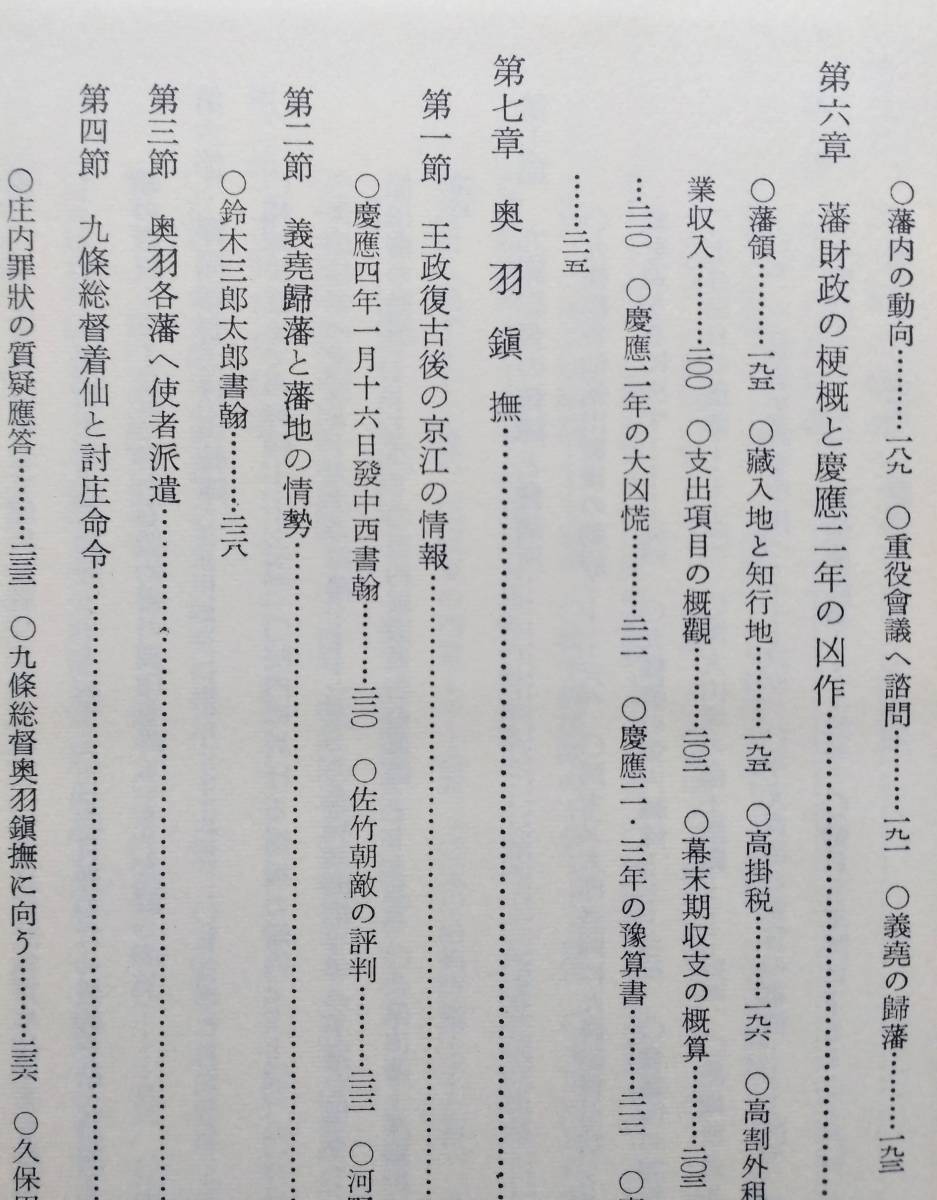 ○藩内の動向………一八九　○重役會議へ諮問………一九一　○義堯の歸藩………一九三
第六章　藩財政の梗概と慶應二年の凶作………………………
○藩領………一九五　○藏入地と知行地………一九五　○高掛税………一九六　○高割外租
業収入………二〇〇　○支出項目の概觀………二〇二　○幕末期収支の概算………二〇三
…二一〇　○慶應二年の大凶慌………二一一　○慶應二・三年の豫算書………二一三　○
……二一五
第七章　奥羽鎭撫………………………
第一節　王政復古後の京江の情報………………………
○慶應四年一月十六日發中西書翰………二二〇　○佐竹朝敵の評判………二二三　○河野
第二節　義堯歸藩と藩地の情勢………………………
○鈴木三郎太郎書翰………二二八
第三節　奥羽各藩へ使者派遣………………………
第四節　九條総督着仙と討庄命令………………………
○庄内罪狀の質疑應答………二三三　○九條総督奥羽鎭撫に向う………二三六　○久保田